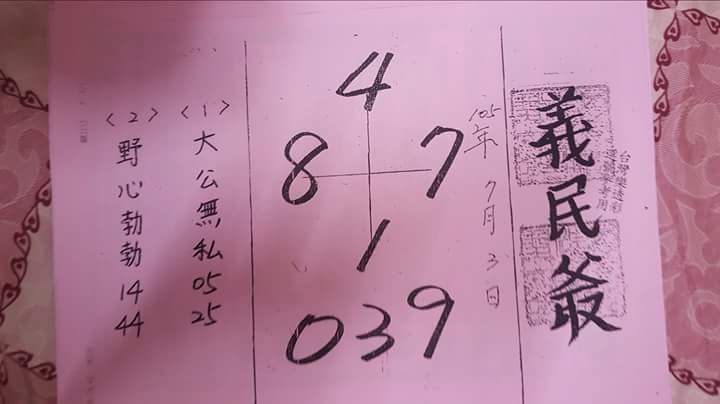 義民爺
台灣樂透彩
105年 7月 3日
4
8 7
1
039
〈1〉大公無私 05 25
〈2〉野心勃勃 14 44